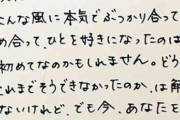 んな風に本気でぶつかり合って
め合って、ひとを好きになったのは
初めてなのかもしれません。どう
れまでそうできなかったのか、は解
ないけれど、でも今、あなたを